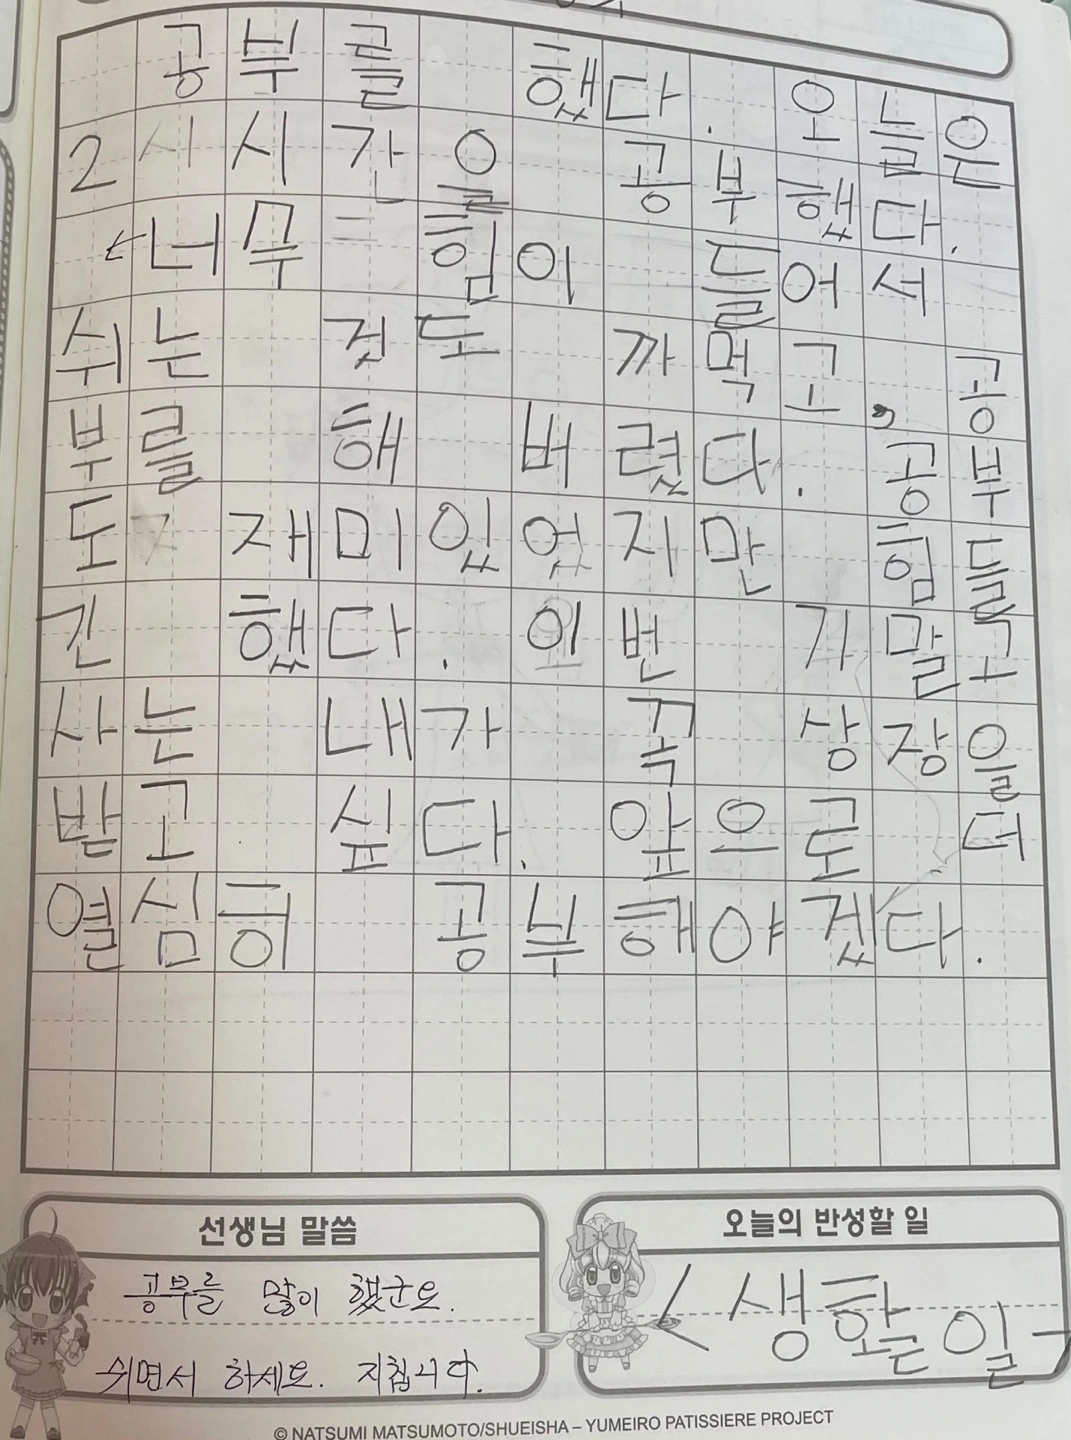 공부를 했다. 오늘은
2시시간을 공부했다.
너무 힘이 들어서
쉬는 것도 까먹고, 공
부를 해 버렸다. 공부
도 재미있었지만 힘들
긴 했다. 이번 기말고
사는 내가 꼭 상장을
받고 싶다. 앞으로 더
열심히 공부해야겠다.
선생님 말씀
공부를 많이 했군요.
쉬면서 하세요. 지칩니다.
오늘의 반성할 일
생활 일
© NATSUMI MATSUMOTO/SHUEISHA – YUMEIRO PATISSIERE PROJECT